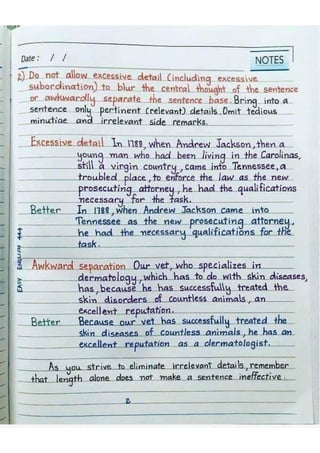 Date : / /
NOTES
2) Do not allow excessive detail (including excessive
subordination) to blur the central thought of the sentence
or awkwardly separate the sentence base. Bring into a
sentence only pertinent (relevant) details. Omit tedious
minutiae and irrelevant side remarks.
Excessive detail In 1788, when Andrew Jackson, then a
young man who had been living in the Carolinas,
still a virgin country, came into Tennessee, a
troubled place, to enforce the law as the new
prosecuting attorney, he had the qualifications
necessary for the task.
Better In 1788, when Andrew Jackson came into
Tennessee as the new prosecuting attorney,
he had the necessary qualifications for the
task.
Awkward separation Our vet, who specializes in
dermatology, which has to do with skin diseases,
has, because he has successfully treated the
skin disorders of countless animals, an
excellent reputation.
Better Because our vet has successfully treated the
skin diseases of countless animals, he has an
excellent reputation as a dermatologist.
As you strive to eliminate irrelevant details, remember
that length alone does not make a sentence ineffective.
2
EASY ENGLISH